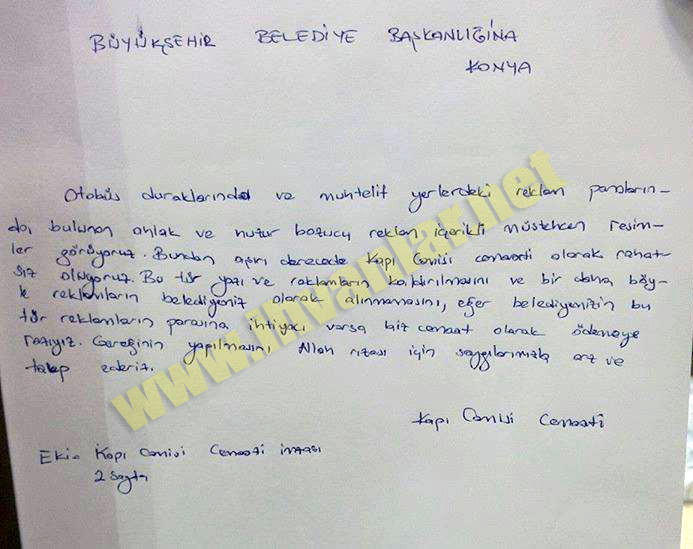 BÜYÜKŞEHİR BELEDİYE BAŞKANLIĞINA
KONYA
Otobüs duraklarında ve muhtelif yerlerdeki reklam panoların-
da, bulunan ahlak ve huzur bozucu reklam içerikli müstehcen resim-
ler görüyoruz. Bundan aşırı derecede Kapı Camisi cemaati olarak rahat-
sız oluyoruz. Bu tür yazı ve reklamların kaldırılmasını ve bir daha böy-
le reklamların belediyeniz olarak alınmamasını, eğer belediyenizin bu
tür reklamların parasına ihtiyacı varsa biz cemaat olarak ödemeye
razıyız. Gereğinin yapılmasını, Allah rızası için saygılarımızla arz ve
talep ederiz.
Kapı Camisi Cemaati
Ek:- Kapı Camisi Cemaati imzası
2 Sayfa
www.ihvanlar.net